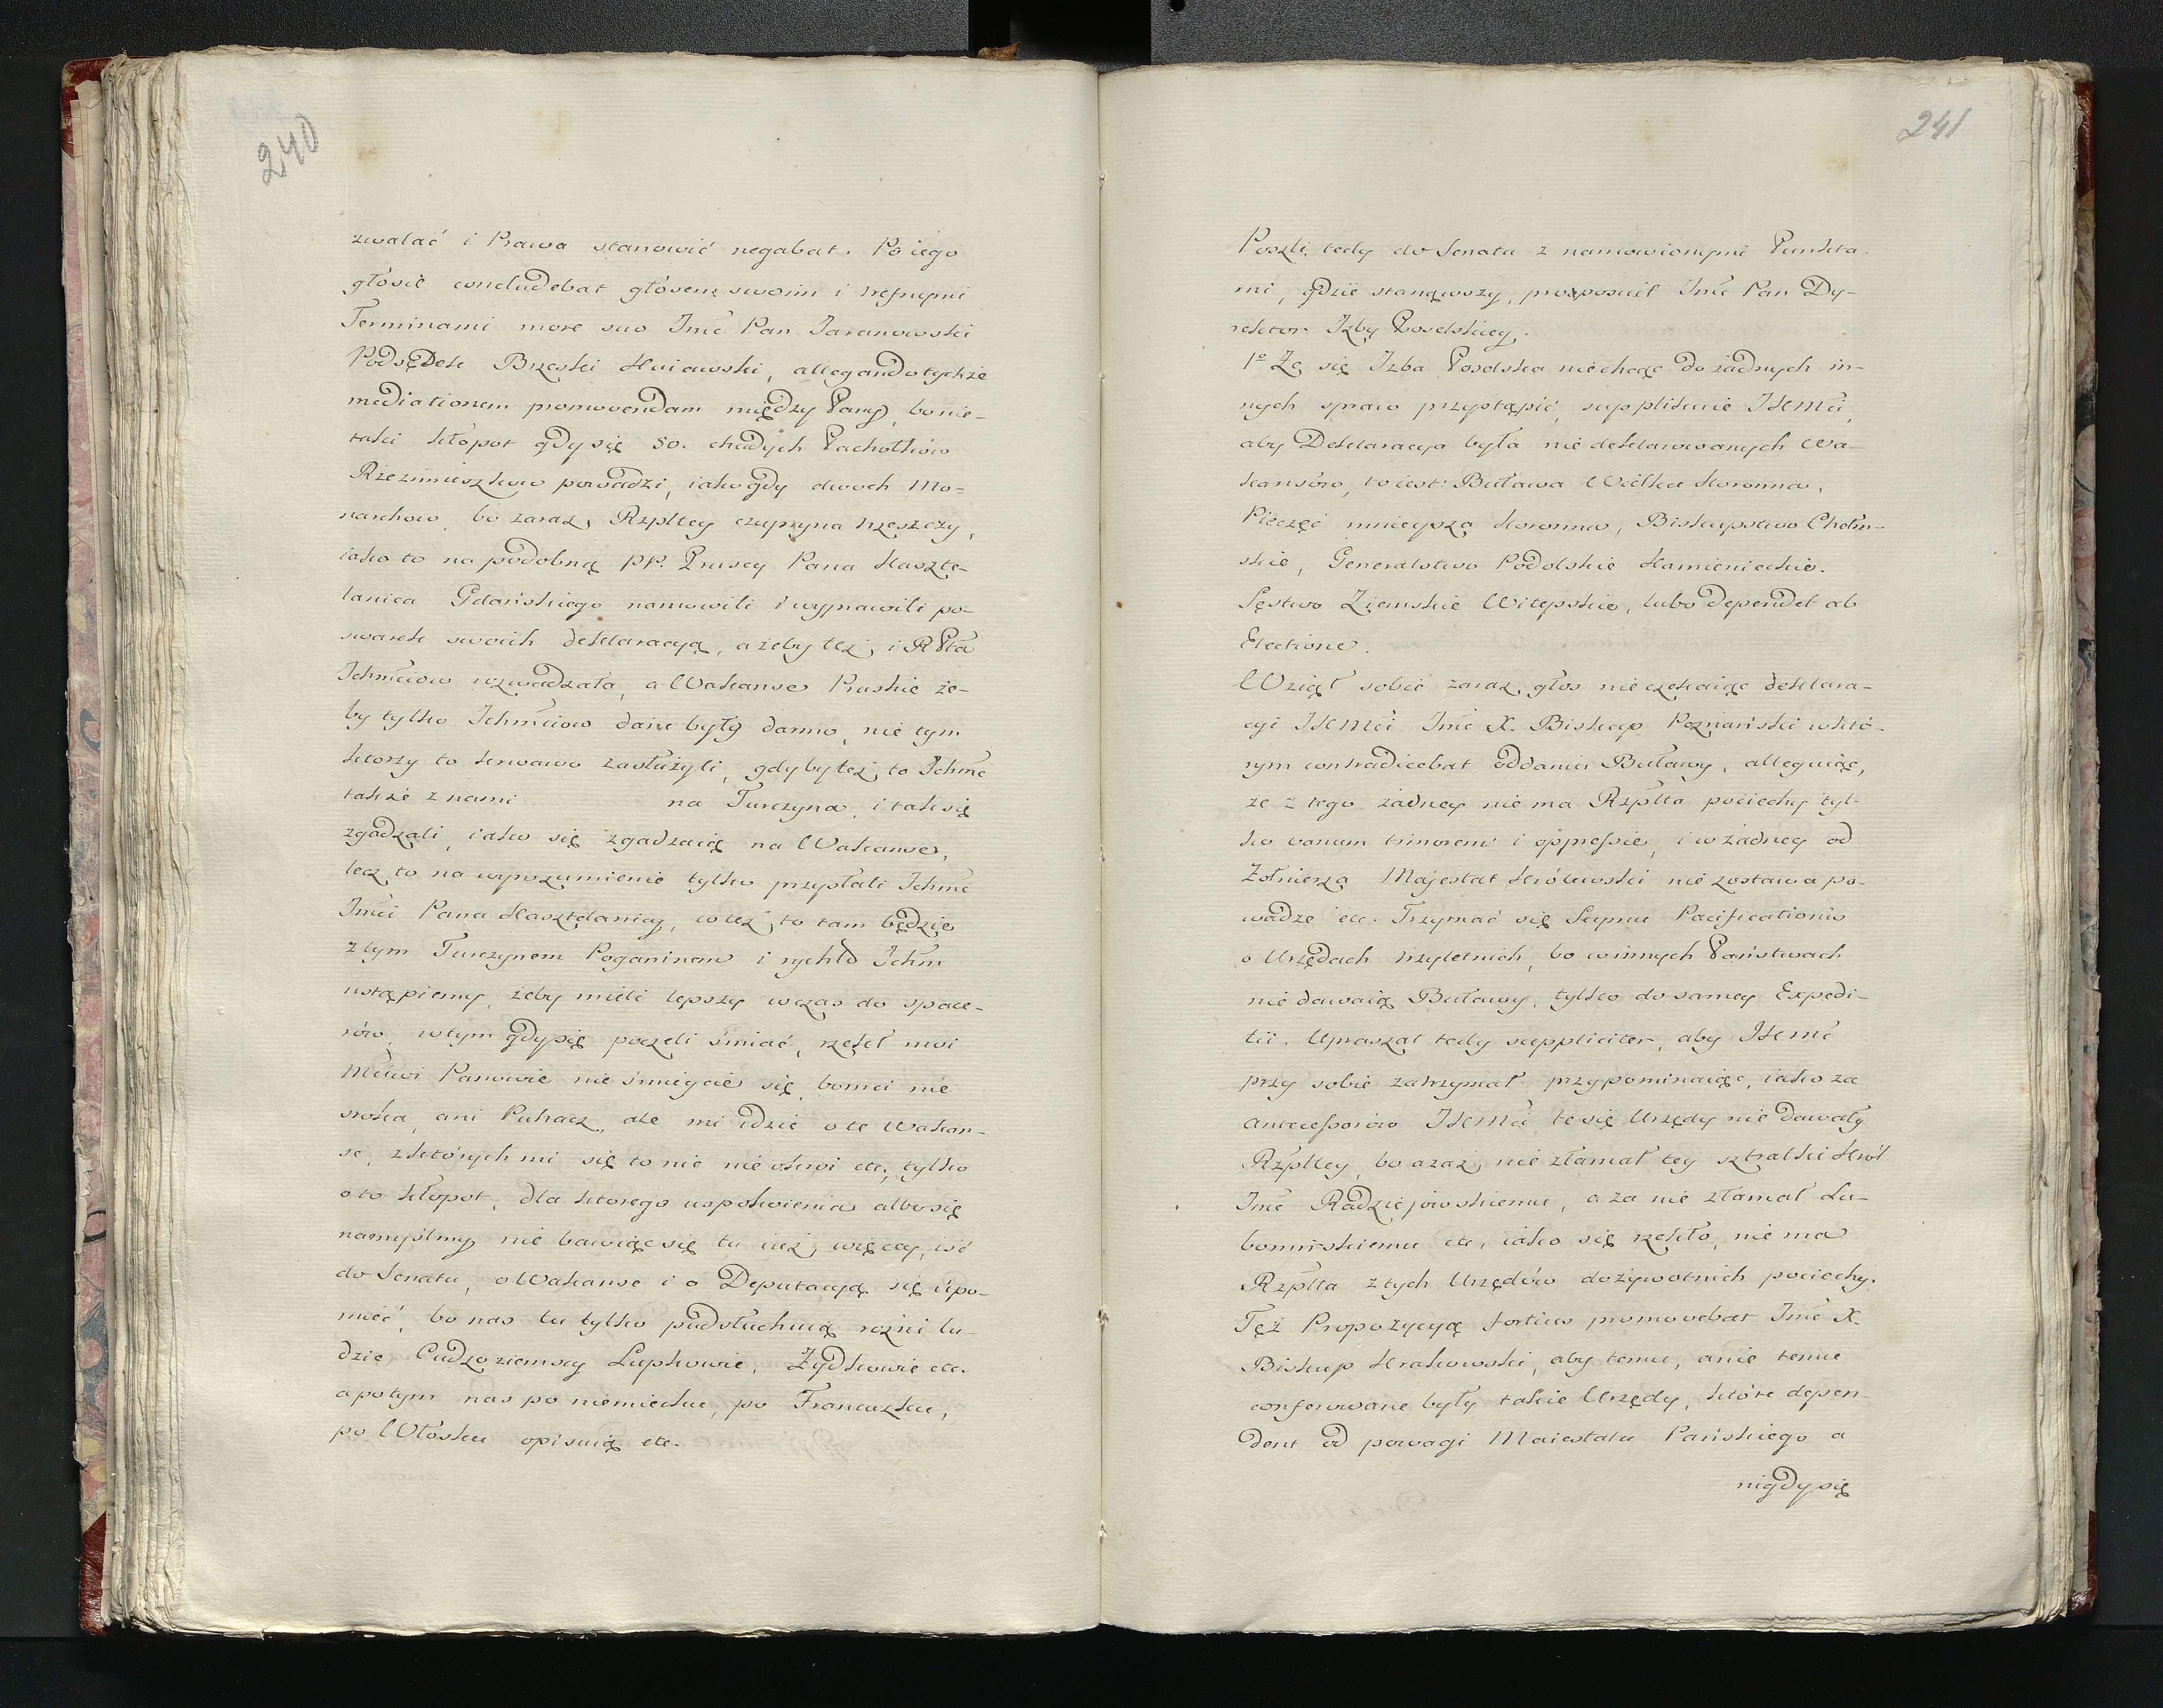 240
zwalać i Prawa stanowić negabat. Po iego
głósie concludebat głósem swoim i trefnymi
Terminami more suo Jmć Pan Jaranowski
Podsędek Brzeski Kuiawski, allegando tychże
mediationem promovendam między Pany, bo nie
taki kłopot gdy się 50. chudych Pachołków
Rzezimieszków powadzi, iako gdy dwoch Mo=
narchow, bo zaraz Rzpltey czupryna trzeszczy,
iako to na podobną PP. Pruscy Pana Kaszte-
lanica Gdańskiego namowili i wyprawili po-
swarek swoich deklaracyą, ażeby też i RPta
Ichmciow rozwadzała, a Wakanse Pruskie że-
by tylko Ichmciow dane były darmo, nie tym
ktorzy to krwawo zasłużyli, gdyby też to Ichmć
także z nami na Turczyna, i tak się
zgadzali, iako się zgadzaią na Wakanse,
lecz to na wyrozumienie tylko przysłali Ichmć
Jmći Pana Kasztelanica, co też to tam będzie
z tym Turczynem Poganinem i rychło Ichm
ustąpiemy, żeby mieli lepszy wczas do space-
rów, w tym gdy się poczeli śmiać, rzekł moi
Mciwi Panowie nie śmieycie się, bom ci nie
sroka, ani Puhacz, ale mi idzie o te Wakan-
se, z których mi się to nic nie okroi etc, tylko
o to kłopot, dla ktorego uspokoienia albo się
namyślmy nie bawiąc się tu iuż więcey, iść
do Senatu, o Wakanse i o Deputacyą się upo-
mieć, bo nas tu tylko podsłuchuią rożni lu-
dzie Cudzoziemscy Łupkowie, Żydkowie etc.
a potym nas po niemiecku, po Francuzku,
po Włósku opisuią etc.
241
Poszli tedy do Senatu z namowionymi Punkta-
mi, gdzie stanąwszy, proposuit Jmć Pan Dy-
rektor Izby Poselskiey.
1º Że się Izba Poselska nie chcąc do żadnych in-
nych spraw przystąpić, supplikuie JKMći,
aby Deklaracya była nie deklarowanych Wa-
kansów, to iest: Buława Wielka Koronna,
Pieczęć mnieysza Koronna, Biskupstwo Chełm-
skie, Generalstwo Podolskie Kamienieckie.
Sęstwo Ziemskie Witepskie, lubo dependet ab
Electione.
Wziął sobie zaraz głos nie czekaiąc deklara-
cyi JKMći Jmć X. Biskup Poznański w któ-
rym contradicebat oddaniu Buławy, alleguiąc,
że z tego żadney nie ma Rzplta pociechy tyl-
ko vanum timorem i oppressie, i w żadney od
Żołnierza Majestat Królewski nie zostawa po-
wadze etc. Trzymać się Seymu Pacificationis
o Urzędach trzyletnich, bo w innych Państwach
nie dawaią Buławy, tylko do samey Expedi-
tii. Upraszał tedy suppliciter, aby JKMć
przy sobie zatrzymał przypominaiąc, iako za
antecessorów JKMći te się Urzędy nie dawały
Rzpltey, bo azaż nie złamał tey sztralki Król
Jmć Radziejowskiemu, a za nie złamał Lu-
bomirskiemu etc, iako się rzekło, nie ma
Rzplta z tych Urzędów dożywotnich pociechy.
Tęż Propozycyą fortius promovebat Jmć X.
Biskup Krakowski, aby temu, a nie temu
conferowane były takie Urzędy, które depen-
dent od powagi Maiestatu Pańskiego a
nigdy się